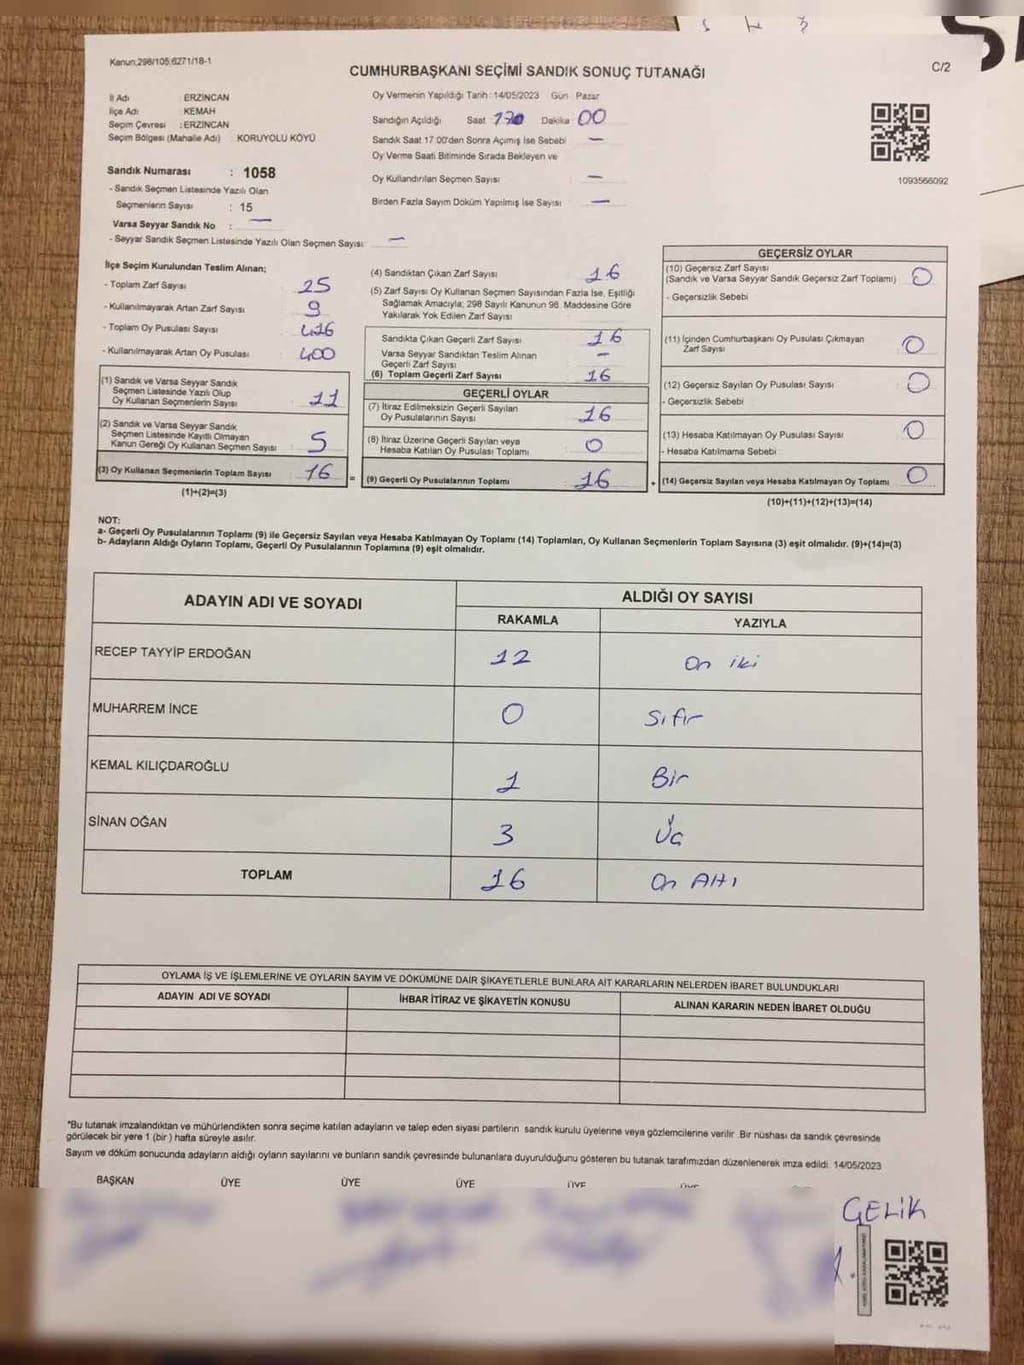 Kanun:298/105;6271/18-1
CUMHURBAŞKANI SEÇİMİ SANDIK SONUÇ TUTANAĞI
C/2
İl Adı : ERZİNCAN
İlçe Adı : KEMAH
Seçim Çevresi : ERZİNCAN
Seçim Bölgesi (Mahalle Adı) : KORUYOLU KÖYÜ
Sandık Numarası : 1058
- Sandık Seçmen Listesinde Yazılı Olan
Seçmenlerin Sayısı : 15
Varsa Seyyar Sandık No : —
- Seyyar Sandık Seçmen Listesinde Yazılı Olan Seçmen Sayısı: —
Oy Vermenin Yapıldığı Tarih : 14/05/2023 Gün : Pazar
Sandığın Açıldığı Saat Dakika 00
Sandık Saat 17.00'den Sonra Açımış İse Sebebi —
Oy Verme Saati Bitiminde Sırada Bekleyen ve
Oy Kullandırılan Seçmen Sayısı : —
Birden Fazla Sayım Döküm Yapılmış İse Sayısı : —
1093566092
İlçe Seçim Kurulundan Teslim Alınan;
- Toplam Zarf Sayısı : 25
- Kullanılmayarak Artan Zarf Sayısı : 9
- Toplam Oy Pusulası Sayısı : 416
- Kullanılmayarak Artan Oy Pusulası : 400
(1) Sandık ve Varsa Seyyar Sandık
Seçmen Listesinde Yazılı Olup
Oy Kullanan Seçmenlerin Sayısı : 11
(2) Sandık ve Varsa Seyyar Sandık
Seçmen Listesinde Kayıtlı Olmayan
Kanun Gereği Oy Kullanan Seçmen Sayısı : 5
(3) Oy Kullanan Seçmenlerin Toplam Sayısı : 16
(1)+(2)=(3)
(4) Sandıktan Çıkan Zarf Sayısı : 16
(5) Zarf Sayısı Oy Kullanan Seçmen Sayısından Fazla İse, Eşitliği
Sağlamak Amacıyla; 298 Sayılı Kanunun 98. Maddesine Göre
Yakılarak Yok Edilen Zarf Sayısı :
Sandıkta Çıkan Geçerli Zarf Sayısı : 16
Varsa Seyyar Sandıktan Teslim Alınan
Geçerli Zarf Sayısı : —
(6) Toplam Geçerli Zarf Sayısı : 16
GEÇERLİ OYLAR
(7) İtiraz Edilmeksizin Geçerli Sayılan
Oy Pusulalarının Sayısı : 16
(8) İtiraz Üzerine Geçerli Sayılan veya
Hesaba Katılan Oy Pusulası Toplamı : 0
= (9) Geçerli Oy Pusulalarının Toplamı : 16
GEÇERSİZ OYLAR
(10) Geçersiz Zarf Sayısı
(Sandık ve Varsa Seyyar Sandık Geçersiz Zarf Toplamı) : 0
- Geçersizlik Sebebi
(11) İçinden Cumhurbaşkanı Oy Pusulası Çıkmayan
Zarf Sayısı : 0
(12) Geçersiz Sayılan Oy Pusulası Sayısı : 0
- Geçersizlik Sebebi
(13) Hesaba Katılmayan Oy Pusulası Sayısı : 0
- Hesaba Katılmama Sebebi
+ (14) Geçersiz Sayılan veya Hesaba Katılmayan Oy Toplamı : 0
(10)+(11)+(12)+(13)=(14)
NOT:
a- Geçerli Oy Pusulalarının Toplamı (9) ile Geçersiz Sayılan veya Hesaba Katılmayan Oy Toplamı (14) Toplamları, Oy Kullanan Seçmenlerin Toplam Sayısına (3) eşit olmalıdır. (9)+(14)=(3)
b- Adayların Aldığı Oyların Toplamı, Geçerli Oy Pusulalarının Toplamına (9) eşit olmalıdır.
ADAYIN ADI VE SOYADI
ALDIĞI OY SAYISI
RAKAMLA YAZIYLA
RECEP TAYYİP ERDOĞAN 12 On iki
MUHARREM İNCE 0 Sıfır
KEMAL KILIÇDAROĞLU 1 Bir
SİNAN OĞAN 3 Üç
TOPLAM 16 On Altı
OYLAMA İŞ VE İŞLEMLERİNE VE OYLARIN SAYIM VE DÖKÜMÜNE DAİR ŞİKAYETLERLE BUNLARA AİT KARARLARIN NELERDEN İBARET BULUNDUKLARI
ADAYIN ADI VE SOYADI İHBAR İTİRAZ VE ŞİKAYETİN KONUSU ALINAN KARARIN NEDEN İBARET OLDUĞU
*Bu tutanak imzalandıktan ve mühürlendikten sonra seçime katılan adayların ve talep eden siyasi partilerin sandık kurulu üyelerine veya gözlemcilerine verilir. Bir nüshası da sandık çevresinde
görülecek bir yere 1 (bir) hafta süreyle asılır.
Sayım ve döküm sonucunda adayların aldığı oyların sayılarını ve bunların sandık çevresinde bulunanlara duyurulduğunu gösteren bu tutanak tarafımızdan düzenlenerek imza edildi. 14/05/2023
BAŞKAN ÜYE ÜYE ÜYE ÜYE
ÇELİK